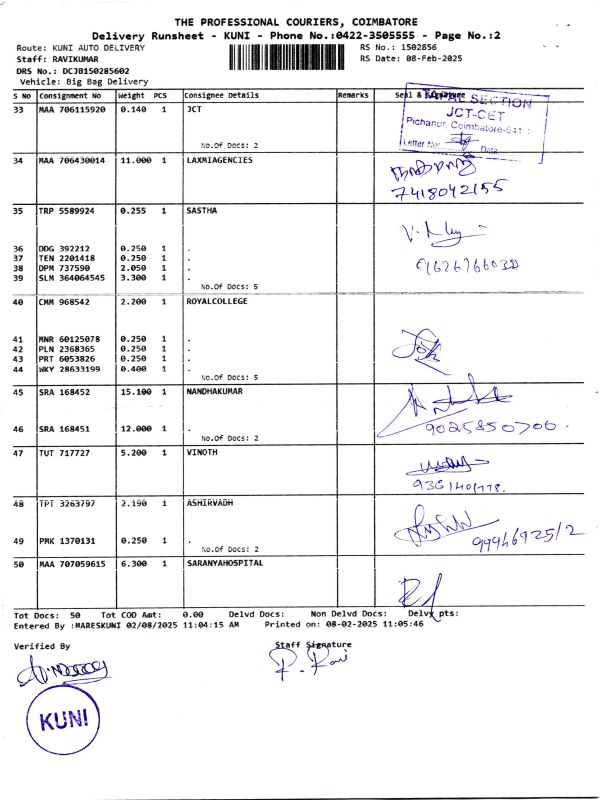 THE PROFESSIONAL COURIERS, COIMBATORE
Delivery Runsheet - KUNI - Phone No.:0422-3505555 - Page No.:2
Route: KUNI AUTO DELIVERY RS No.: 1502856
Staff: RAVIKUMAR RS Date: 08-Feb-2025
DRS No.: DCJB150285602
Vehicle: Big Bag Delivery
S No Consignment No Weight PCS Consignee Details Remarks Seal & Signature
33 MAA 706115920 0.140 1 JCT
SECTION
JCT-CET
Pichanur, Coimbatore-641
Letter No: Date:
No.Of Docs: 2
34 MAA 706430014 11.000 1 LAXMIAGENCIES
7418042155
35 TRP 5589924 0.255 1 SASTHA
36 DDG 392212 0.250 1 .
37 TEN 2201418 0.250 1 .
38 DPM 737590 2.050 1 .
39 SLM 364064545 3.300 1 .
No.Of Docs: 5
40 CMM 968542 2.200 1 ROYALCOLLEGE
41 MNR 60125078 0.250 1 .
42 PLN 2368365 0.250 1 .
43 PRT 6053826 0.250 1 .
44 WKY 28633199 0.400 1 .
No.Of Docs: 5
45 SRA 168452 15.100 1 NANDHAKUMAR
46 SRA 168451 12.000 1 .
9025850706.
No.Of Docs: 2
47 TUT 717727 5.200 1 VINOTH
48 TPT 3263797 2.190 1 ASHIRVADH
49 PMK 1370131 0.250 1 .
No.Of Docs: 2
50 MAA 707059615 6.300 1 SARANYAHOSPITAL
Tot Docs: 50 Tot COD Amt: 0.00 Delvd Docs: Non Delvd Docs: Delvy pts:
Entered By :MARESKUNI 02/08/2025 11:04:15 AM Printed on: 08-02-2025 11:05:46
Verified By Staff Signature
P. Ravi
KUNI